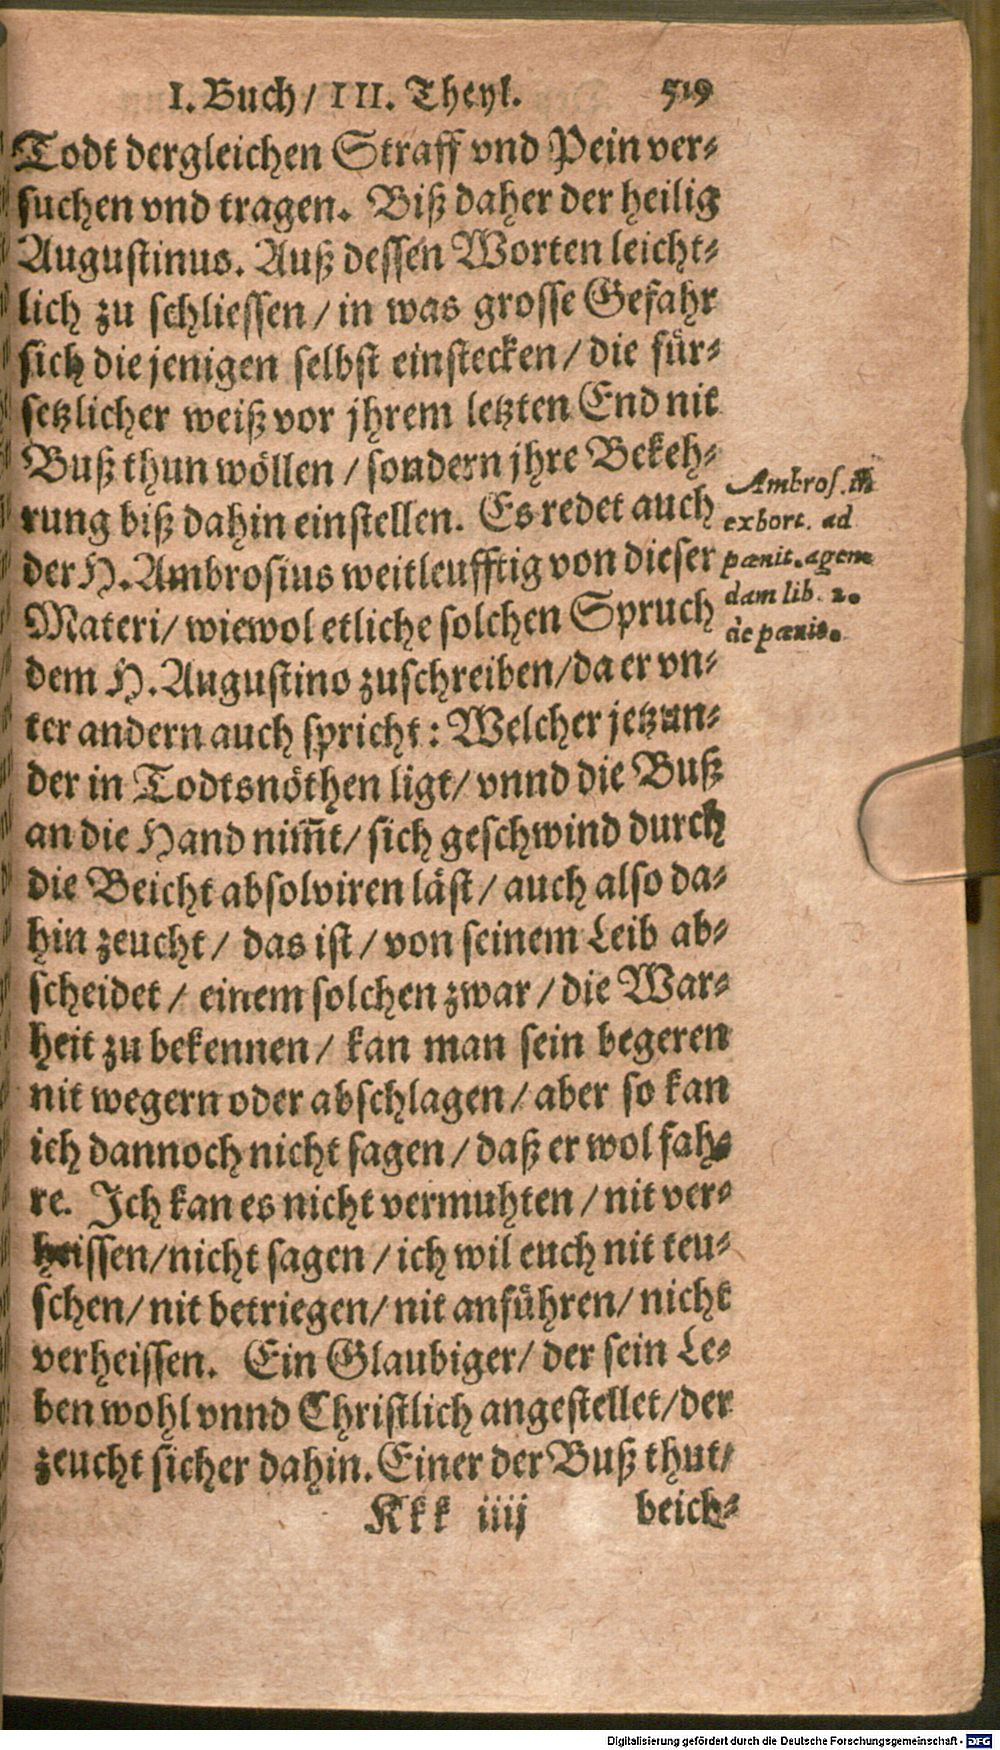 I. Buch / III. Theyl. 519
Todt dergleichen Straff vnd Pein ver⸗
suchen vnd tragen. Biß daher der heilig
Augustinus. Auß dessen Worten leicht⸗
lich zu schliessen / in was grosse Gefahr
sich die jenigen selbst einstecken / die für⸗
setzlicher weiß vor jhrem letzten End nit
Buß thun wöllen / sondern jhre Bekeh⸗
rung biß dahin einstellen. Es redet auch
der H. Ambrosius weitleufftig von dieser
Materi / wiewol etliche solchen Spruch
dem H. Augustino zuschreiben / da er vn⸗
ter andern auch spricht: Welcher jetzun⸗
der in Todtsnöthen ligt / vnnd die Buß
an die Hand nim̃t / sich geschwind durch
die Beicht absolviren läst / auch also da⸗
hin zeucht / das ist / von seinem Leib ab⸗
scheidet / einem solchen zwar / die War⸗
heit zu bekennen / kan man sein begeren
nit wegern oder abschlagen / aber so kan
ich dannoch nicht sagen / daß er wol fah⸗
re. Ich kan es nicht vermuhten / nit ver⸗
heissen / nicht sagen / ich wil euch nit teu⸗
schen / nit betriegen / nit anführen / nicht
verheissen. Ein Glaubiger / der sein Le⸗
ben wohl vnnd Christlich angestellet / der
zeucht sicher dahin. Einer der Buß thut /
Kkk iiij beich⸗
Ambros. in
exhort. ad
pænit. agen⸗
dam lib. 2.
de pænit.
Digitalisierung gefördert durch die Deutsche Forschungsgemeinschaft - DFG